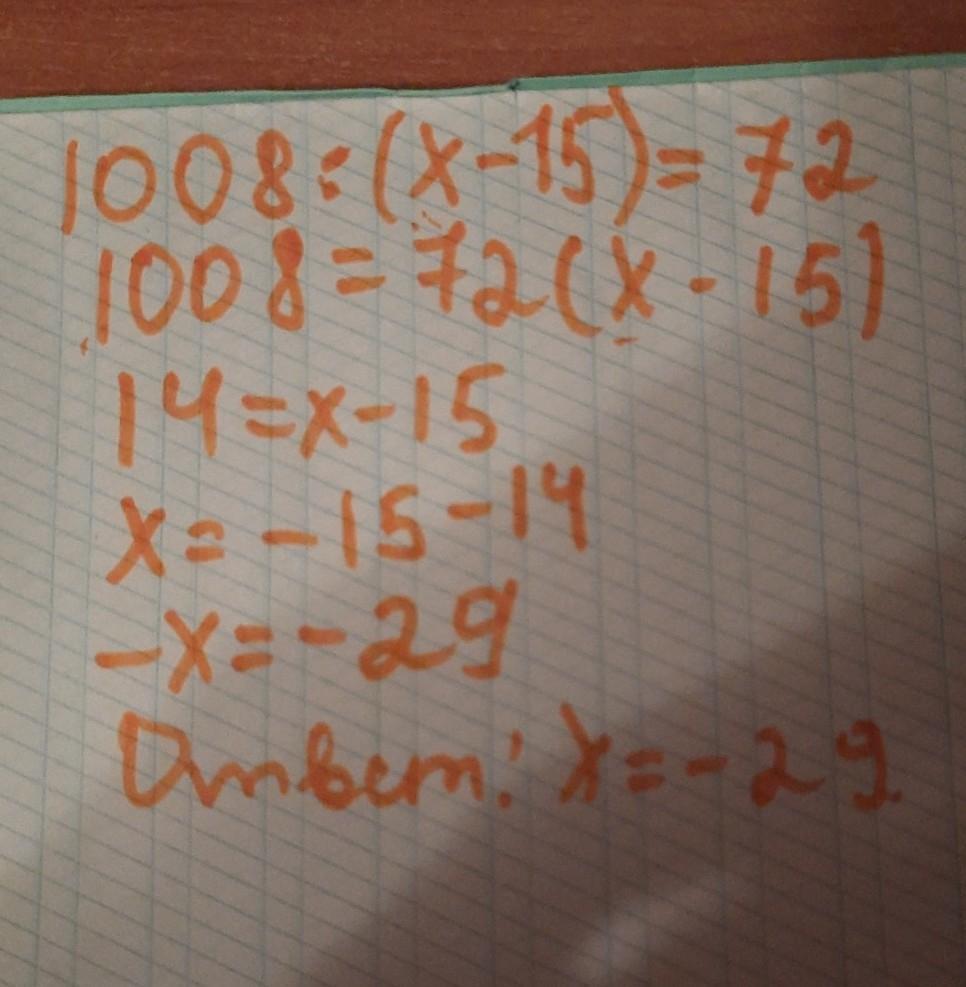 1008:(x-15)=72
1008=72(x-15)
14=x-15
x=-15-14
-x=-29
Ответ: x=-29.